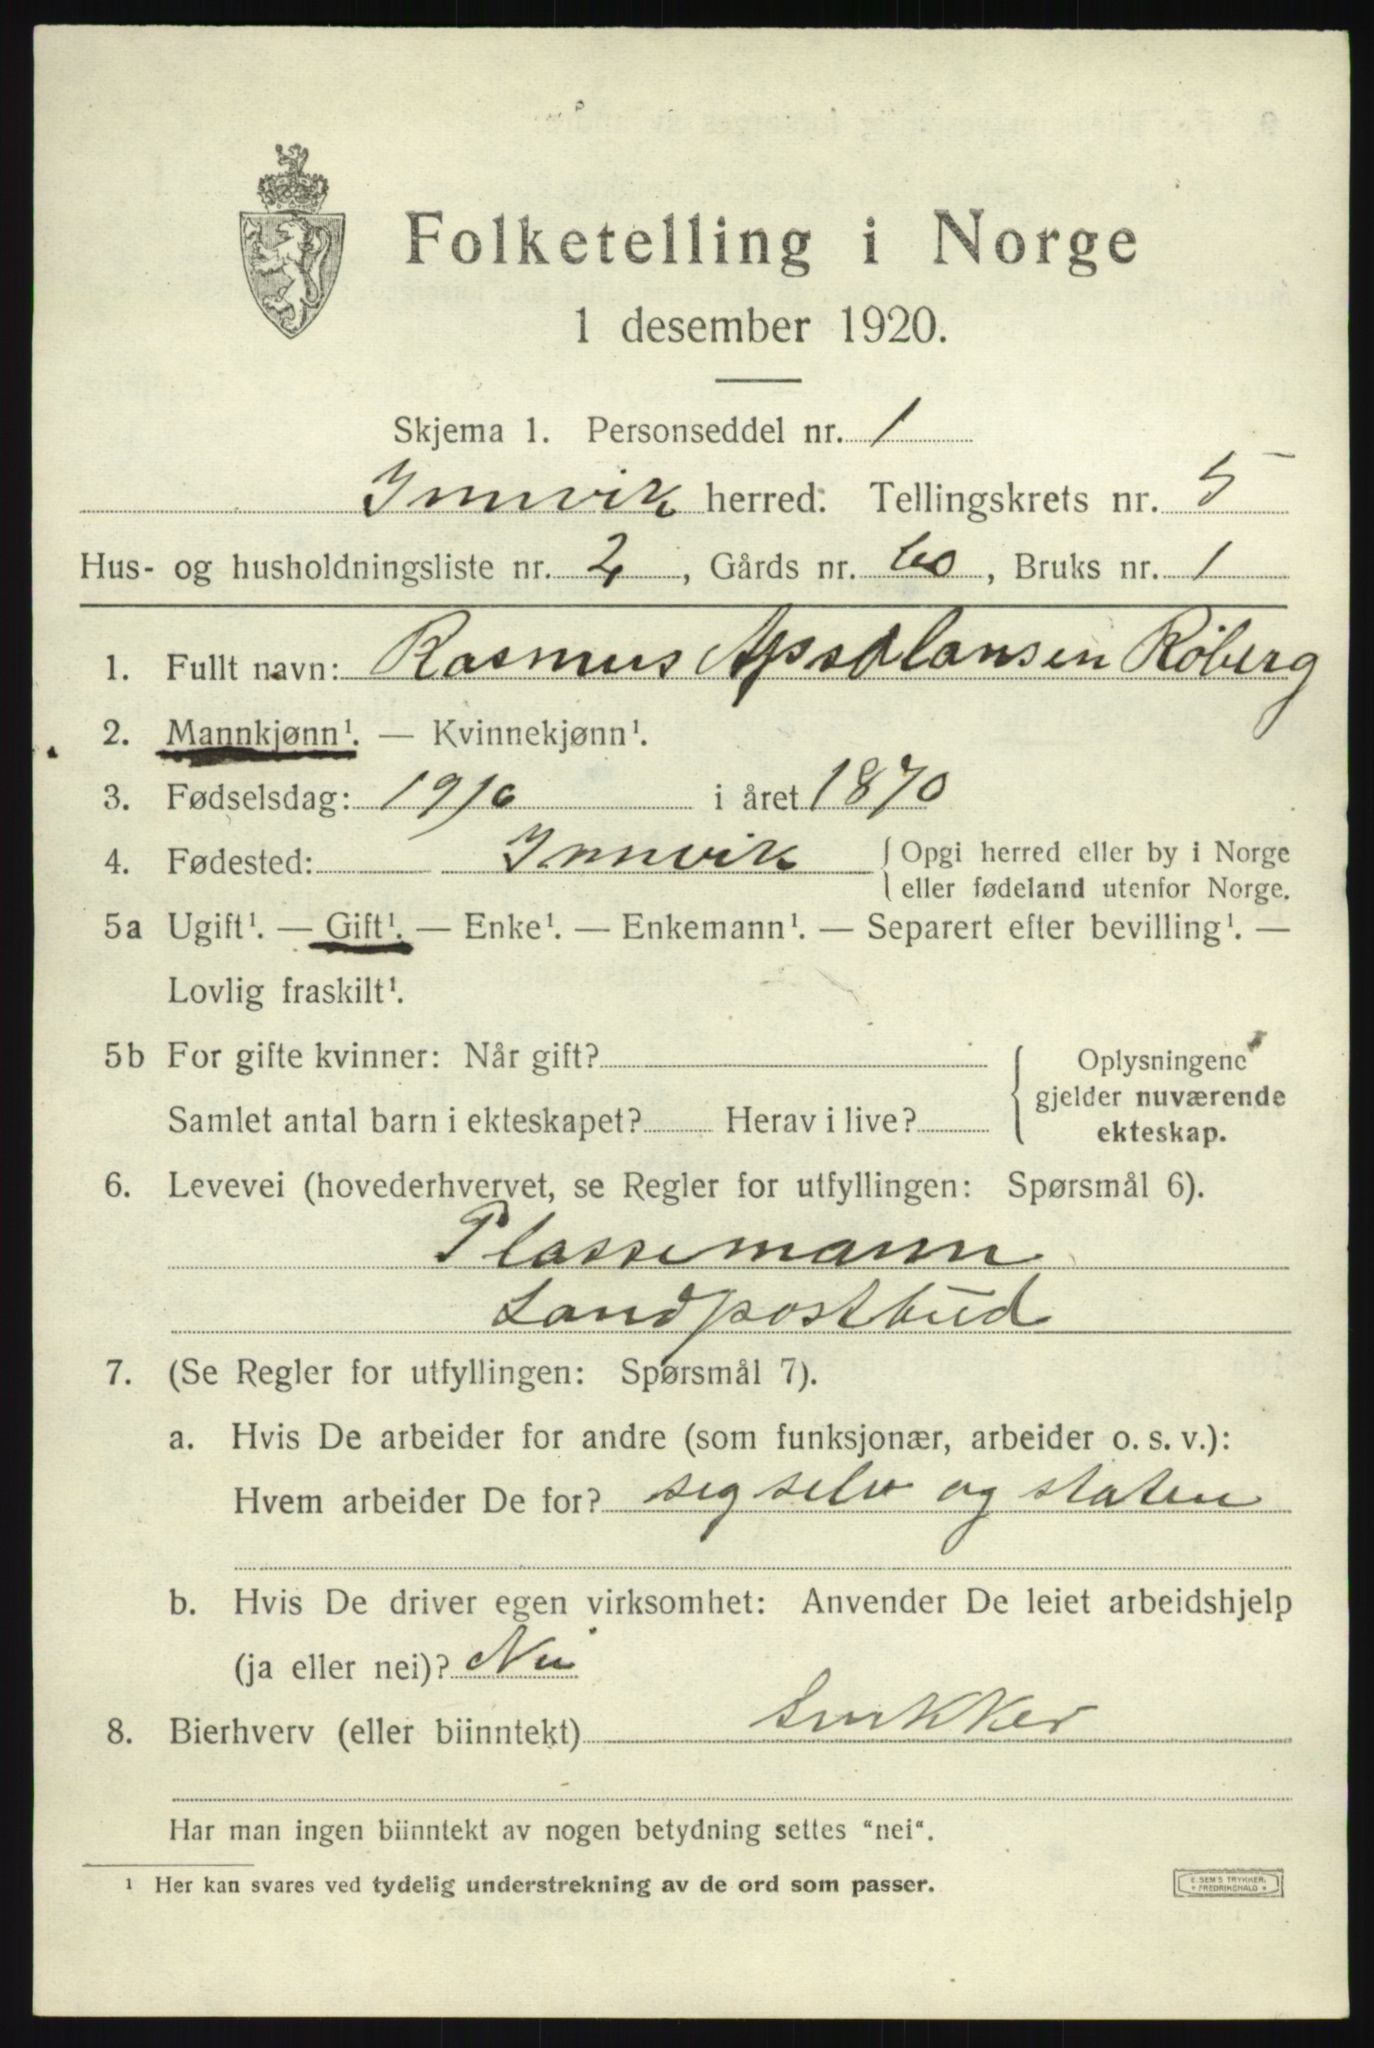 Folketelling i Norge
1 desember 1920.
Skjema 1. Personseddel nr. 1
Innvik herred. Tellingskrets nr. 5
Hus- og husholdningsliste nr. 2, Gårds nr. 60, Bruks nr. 1
1. Fullt navn: Rasmus Apsolansen Røberg
2. Mannkjønn¹. — Kvinnekjønn¹.
3. Fødselsdag: 19/6 i året 1870
4. Fødested: Innvik { Opgi herred eller by i Norge
eller fødeland utenfor Norge.
5a Ugift¹. — Gift¹. — Enke¹. — Enkemann¹. — Separert efter bevilling¹. —
Lovlig fraskilt¹.
5b For gifte kvinner: Når gift? { Oplysningene
gjelder nuværende
Samlet antal barn i ekteskapet? Herav i live? ekteskap.
6. Levevei (hovederhvervet, se Regler for utfyllingen: Spørsmål 6).
Plassemann
Landpostbud
7. (Se Regler for utfyllingen: Spørsmål 7).
a. Hvis De arbeider for andre (som funksjonær, arbeider o. s. v.):
Hvem arbeider De for? sig selv og staten
b. Hvis De driver egen virksomhet: Anvender De leiet arbeidshjelp
(ja eller nei)? Nei
8. Bierhverv (eller biinntekt) Snikker
Har man ingen biinntekt av nogen betydning settes "nei".
¹ Her kan svares ved tydelig understrekning av de ord som passer.
E. SEM'S TRYKKERI
FREDRIKSHALD